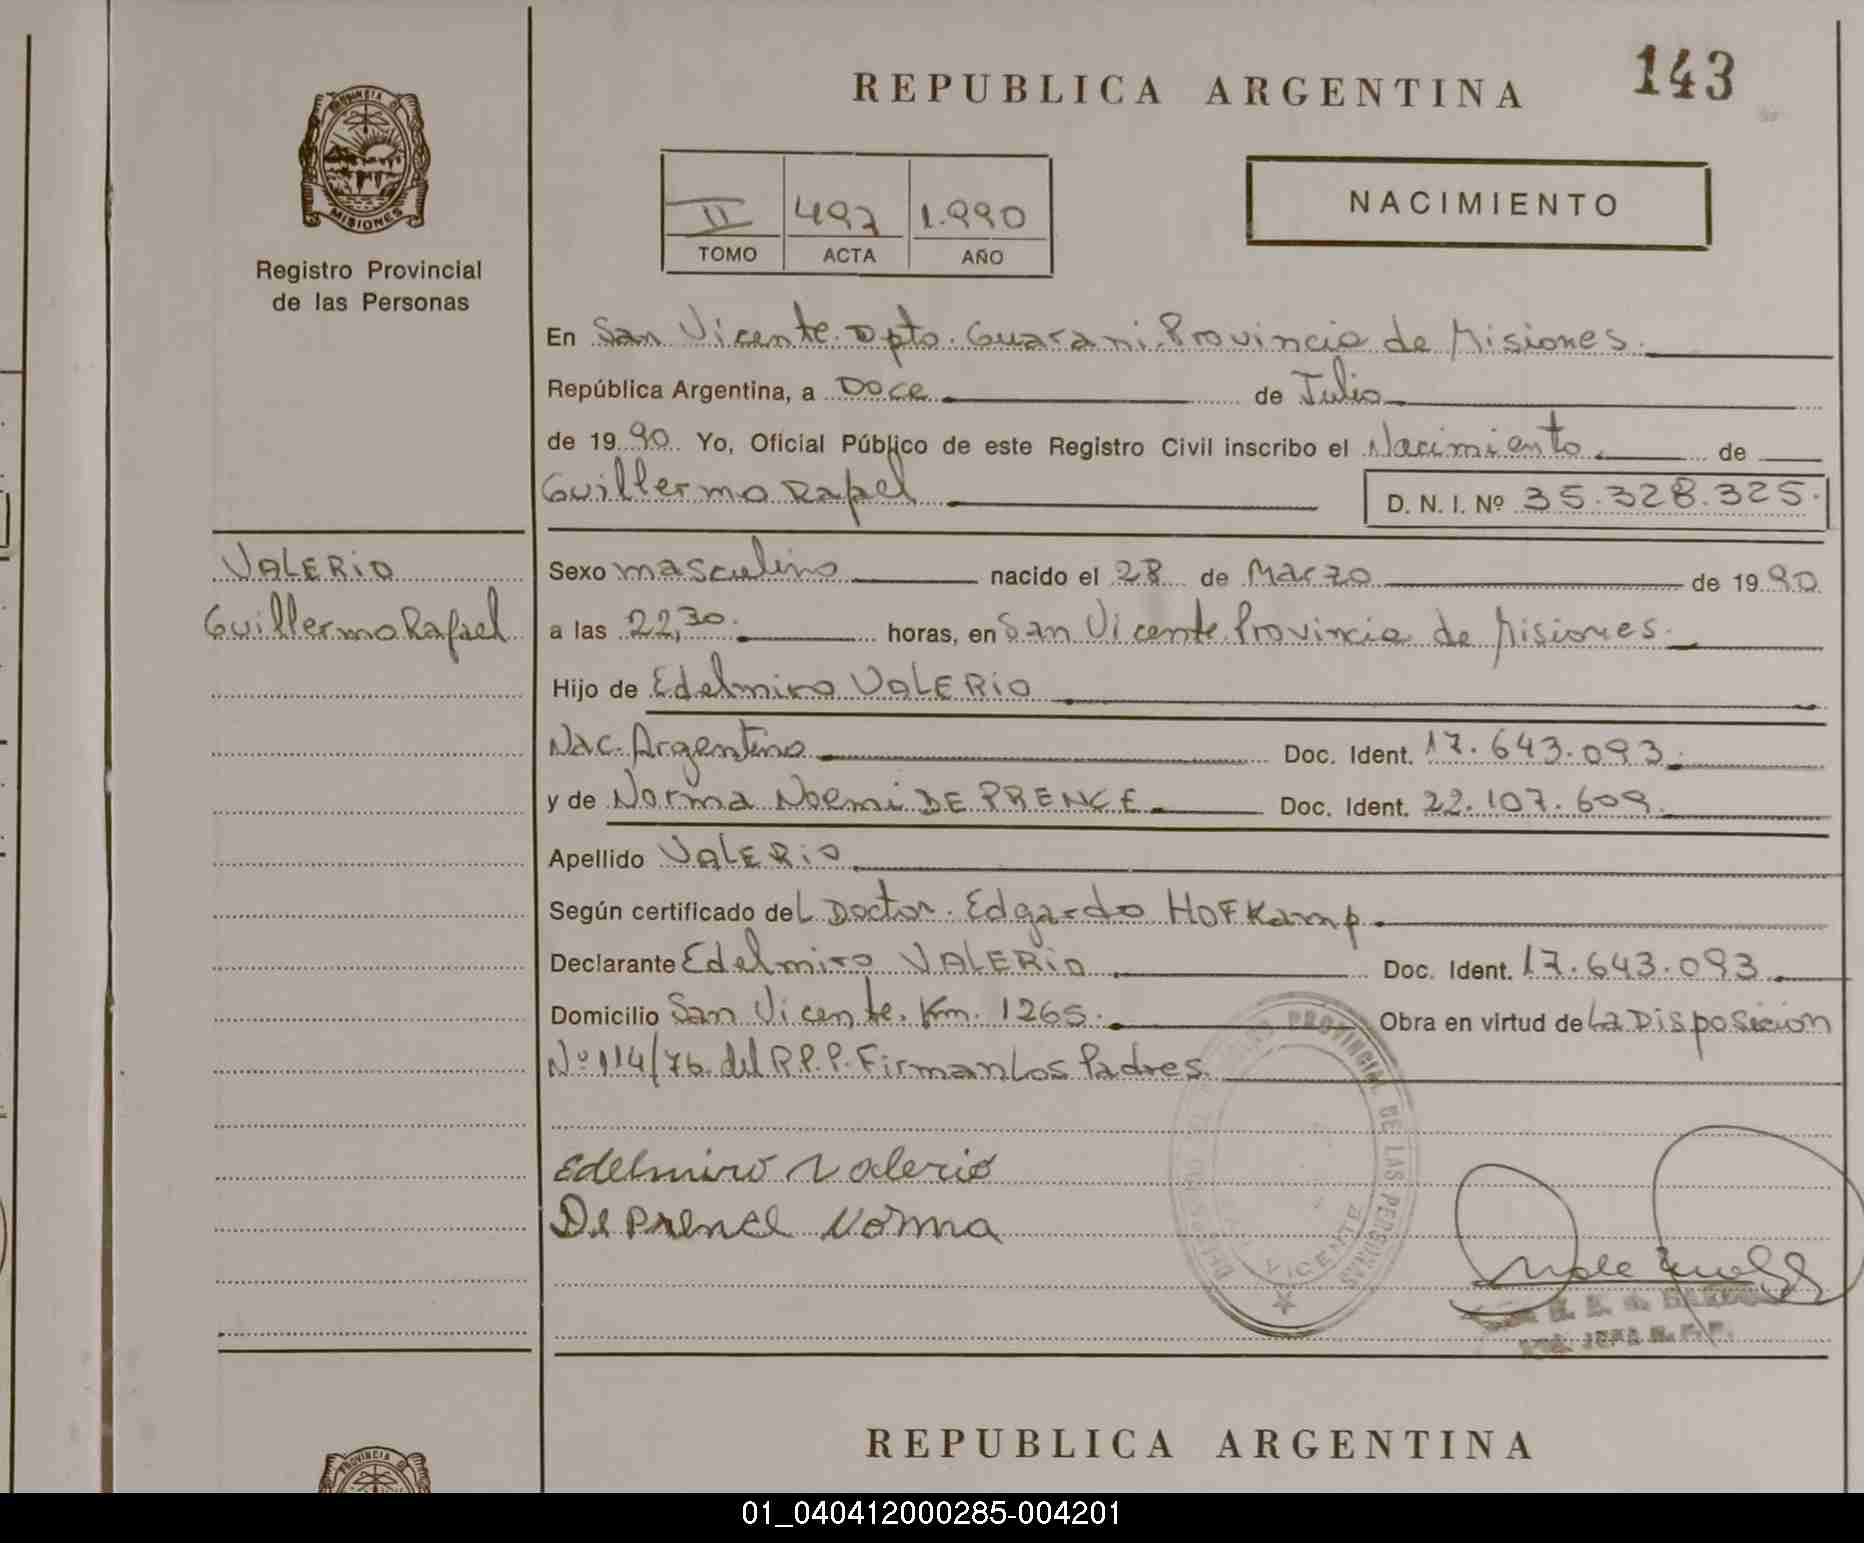 REPUBLICA ARGENTINA
143
PROVINCIA DE
MISIONES
Registro Provincial
de las Personas
II 497 1.990
TOMO ACTA AÑO
NACIMIENTO
En San Vicente. Dpto. Guarani. Provincia de Misiones.
República Argentina, a Doce de Julio
de 1990 Yo, Oficial Público de este Registro Civil inscribo el Nacimiento de
Guillermo Rafael
D. N. I. Nº 35.328.325.
VALERIO
Guillermo Rafael
Sexo masculino nacido el 28 de Marzo de 1990
a las 22,30. horas, en San Vicente Provincia de Misiones.
Hijo de Edelmiro VALERIO
Nac. Argentino Doc. Ident. 17.643.093.
y de Norma Noemi DE PRENCE Doc. Ident. 22.107.609.
Apellido VALERIO
Según certificado del Doctor. Edgardo HOFKamp.
Declarante Edelmiro VALERIO Doc. Ident. 17.643.093
Domicilio San Vicente. Km. 1265. Obra en virtud de La Disposicion
Nº 114/76. del R.P.P. Firman Los Padres.
Edelmiro Valerio
De Prence Norma
PROVINCIAL DE LAS PERSONAS
VICENTE
REPUBLICA ARGENTINA
PROVINCIA
01_040412000285-004201